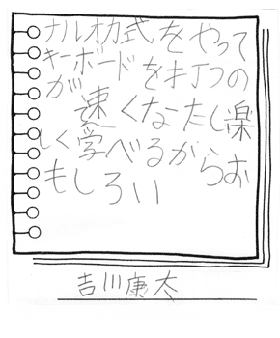 ナルオカ式をやって
キーボードを打つの
が速くなったし楽
しく学べるからお
もしろい
吉川康太